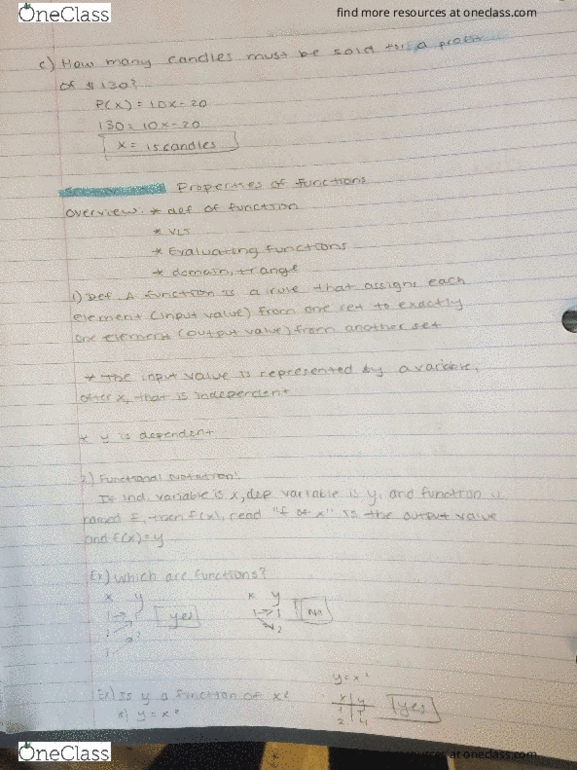 OneClass
find more resources at oneclass.com
c) How many candles must be sold for a profit
of $130?
P(x) = 10x - 20
130 = 10x - 20
x = 15 candles
Properties of functions
overview: * def of function
* VLT
* Evaluating functions
* domain, + range
1) Def. A function is a rule that assigns each
element (input value) from one set to exactly
one element (output value) from another set
* the input value is represented by a variable,
often x, that is independent
* y is dependent
2) Functional Notation:
If ind. variable is x, dep variable is y, and function is
named f, then f(x), read "f of x" is the output value
and f(x)=y
Ex) which are functions?
x y
yes
x y
1 → 1
2
no
Ex) Is y a function of x?
a) y = x²
y = x²
x y
1 1
2 4
yes
OneClass
find more resources at oneclass.com